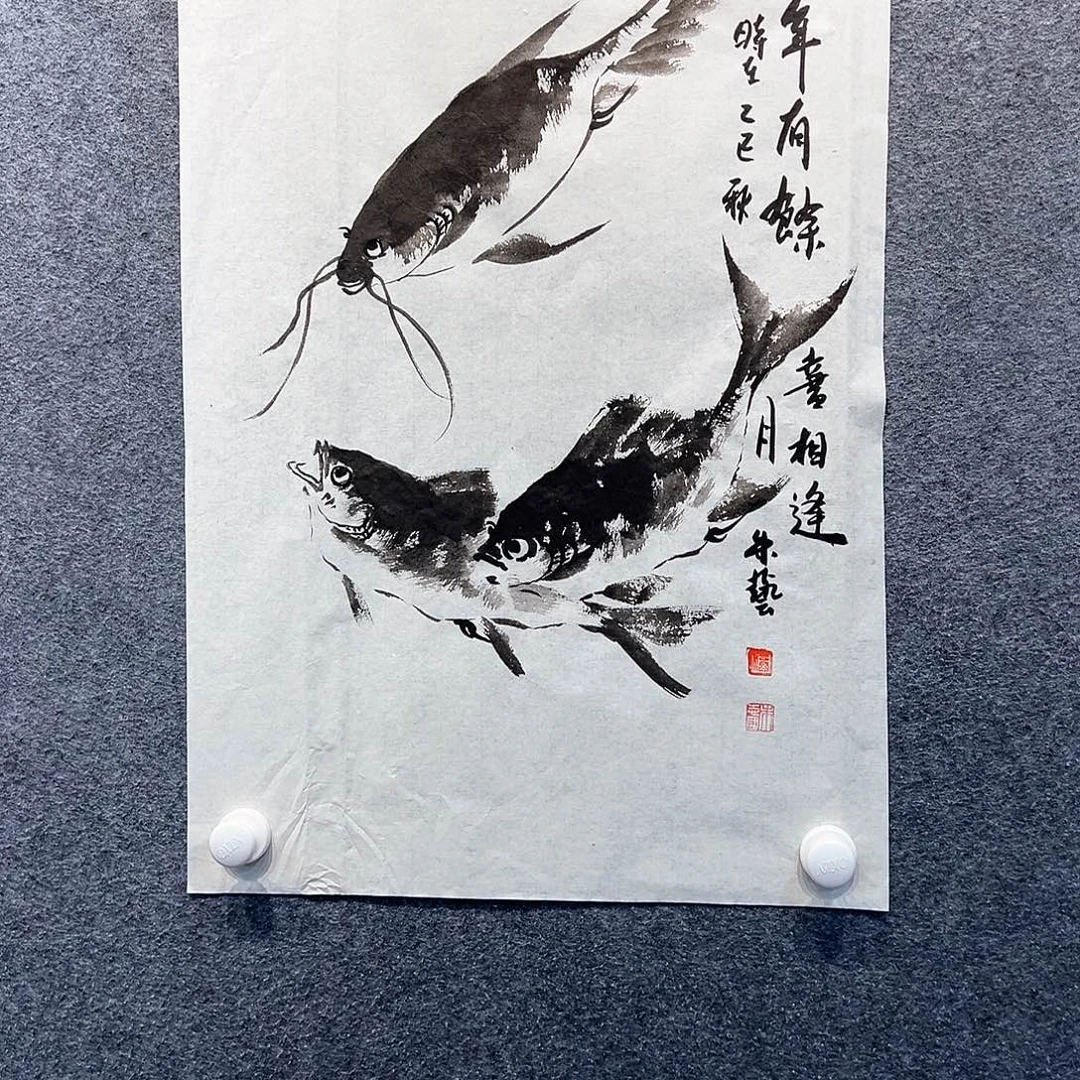 年有餘 喜相逢
時在乙巳秋月 朱藝